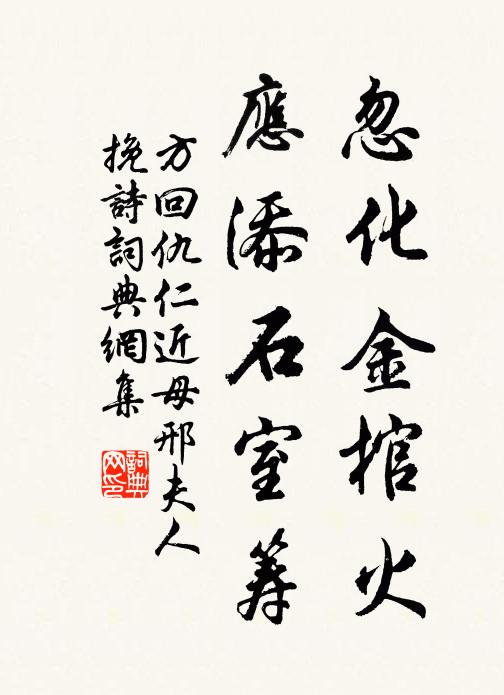 忽化金棺火
應添石室籌
方回仇仁近母邢夫人
挽詩詞典網集
詞典网印